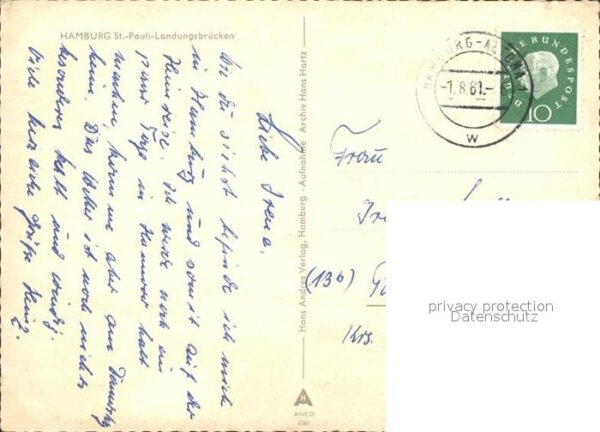 HAMBURG St.-Pauli-Landungsbrücken
Liebe Irene.
Wie du siehst befinde ich mich
in Hamburg und somit auf der
Heimreise. Ich werde noch ein
paar Tage in Hannover halt
machen, komme aber am Dienstag
heim. Das Wetter ist noch nichts
besonderes kalt und windig.
Viele herzliche Grüße
Hans Andres Verlag, Hamburg - Aufnahme Archiv Hans Hartz
ANCO
6261
HAMBURG-ALTONA 1
-1.8.61.-
W
DEUTSCHE BUNDESPOST
10
Frau
(13b)
Krs.
privacy protection
Datenschutz